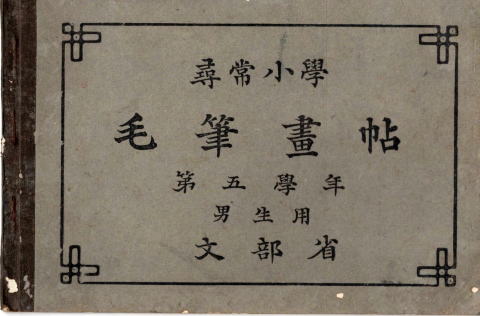 尋常小學
毛筆畫帖
第五學年
男生用
文部省